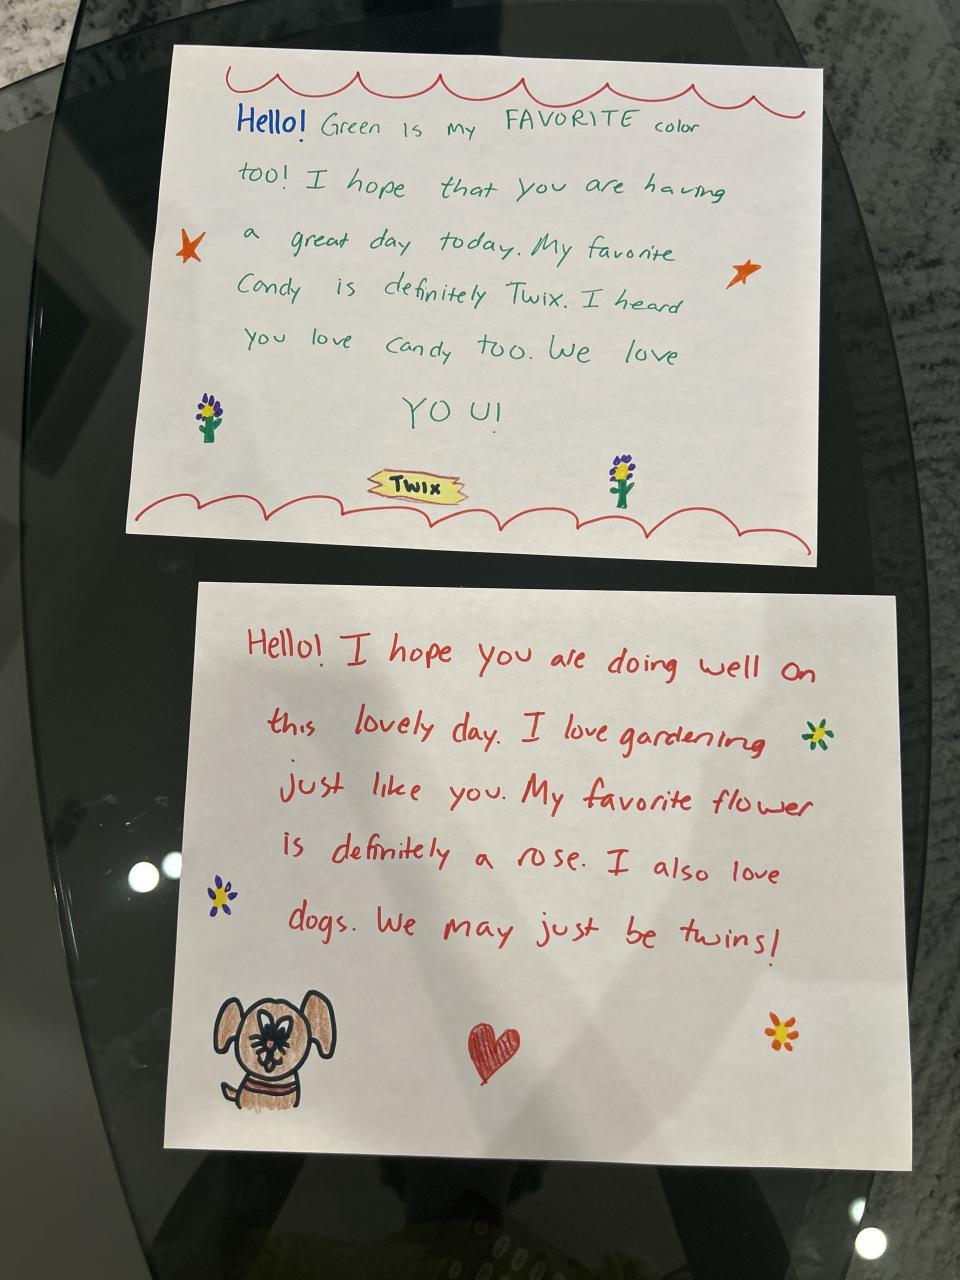 Hello! Green is my FAVORITE color
too! I hope that you are having
a great day today. My favorite
Candy is definitely Twix. I heard
you love candy too. We love
YOU!
TWIX
Hello! I hope you are doing well on
this lovely day. I love gardening
just like you. My favorite flower
is definitely a rose. I also love
dogs. We may just be twins!